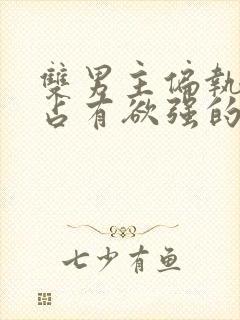 雙男主偏執
占有欲强的
七少有鱼